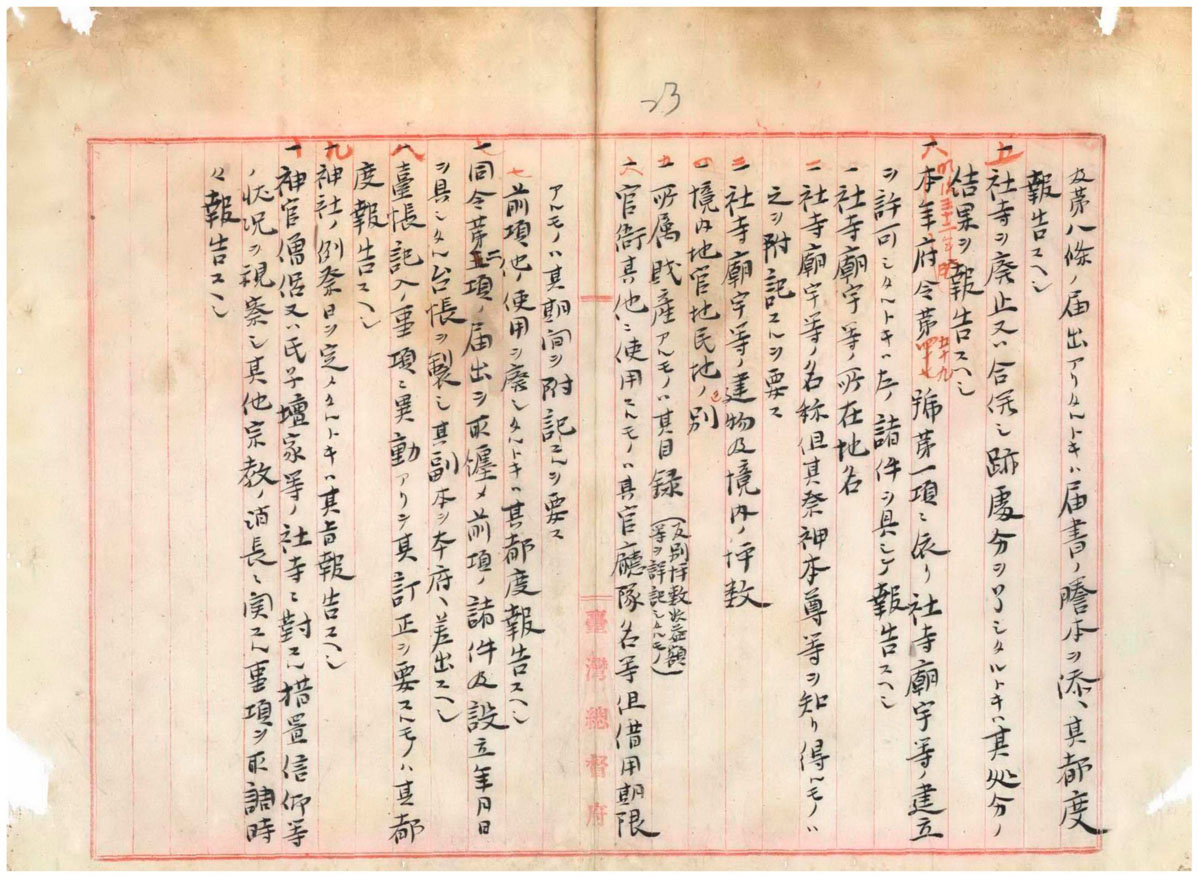 23
及第八條ノ届出アリタルトキハ届書ノ謄本ヲ添ヘ其都度
報告スヘシ
五
一社寺ヲ廃止又ハ合併シ跡處分ヲ了シタルトキハ其処分ノ
結果ヲ報告スヘシ
六 明治三十二年
一本年府令第四十七號第一項ニ依リ社寺廟宇等ノ建立
五十九
ヲ許可シタルトキハ左ノ諸件ヲ具シテ報告スヘシ
一社寺廟宇等ノ所在地名
二社寺廟宇等ノ名称但其祭神本尊等ヲ知リ得ルモノハ
之ヲ附記スルヲ要ス
三社寺廟宇等ノ建物及境内ノ坪数
四境内地官地民地ノ区別
五所属財産アルモノハ其目録(反別坪数収益額等ヲ詳記シタルモノ)
六官衙其他ニ使用スルモノハ其官廳隊名等但借用期限
臺灣總督府
アルモノハ其期间ヲ附記スルヲ要ス
七前項他ノ使用ヲ廃シタルトキハ其都度報告スヘシ
七同令第二項ノ届出ヲ取纏メ前項ノ諸件及設立年月日
ヲ具シタル台帳ヲ製シ其副本ヲ本府ヘ差出スヘシ
八臺帳記入ノ事項ニ異動アリシ其訂正ヲ要スルモノハ其都
度報告スヘシ
九神社ノ例祭日ヲ定メタルトキハ其旨報告スヘシ
十神官僧侶又ハ氏子壇家等ノ社寺ニ對スル措置信仰等
ノ状況ヲ視察シ其他宗教ノ消長ニ関スル事項ヲ取調時
々報告スヘシ